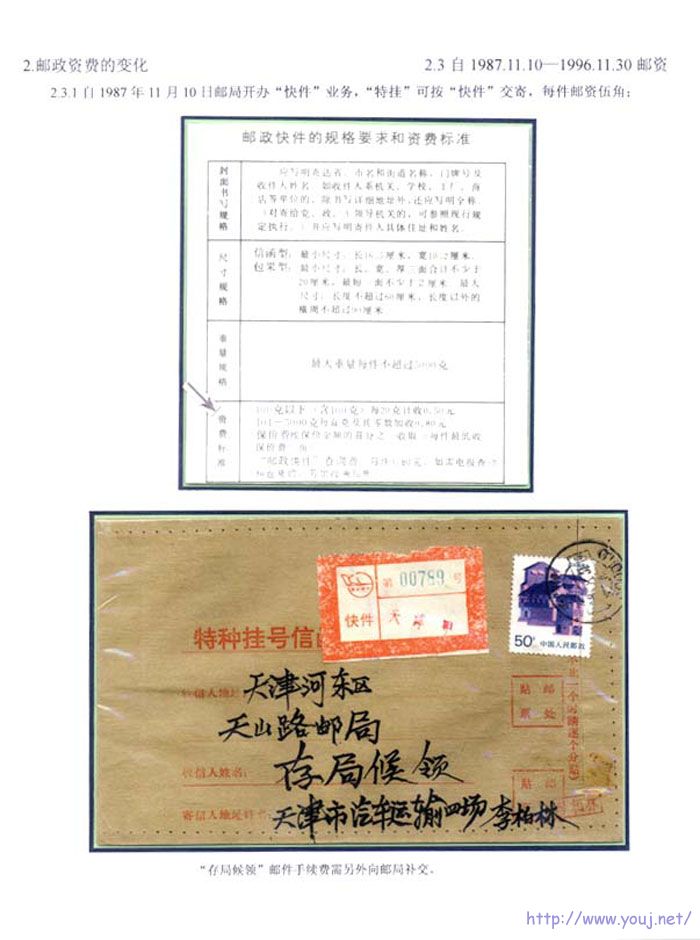 2.邮政资费的变化
2.3 自 1987.11.10—1996.11.30 邮资
2.3.1 自 1987 年 11 月 10 日邮局开办 “快件” 业务，“特挂” 可按 “快件” 交寄，每件邮资伍角；
邮政快件的规格要求和资费标准
封面书写规格
应写明寄达省、市名和街道名称，门牌号及
收件人姓名。如收件人系机关、学校、工厂、商
店等单位的，除书写详细地址外，还应写明全称。
（对寄给党、政、
领导机关的，可参照现行规
定执行。）并应写明寄件人具体住址和姓名。
尺寸规格
信函型：最小尺寸：长16.5厘米，宽10.2厘米。
包裹型：最小尺寸：长、宽、厚三面合计不少于
20厘米，最短一面不少于2厘米。最大
尺寸：长度不超过60厘米，长度以外的
横周不超过90厘米
重量规格
最大重量每件不超过5000克
资费标准
100克以下（含100克）每20克计收0.50元
101—5000克每百克及其零数加收0.80元
保价费按保价金额的百分之一收取
每件最低收
保价费
“邮政快件”查询费
第 00789 号
快件
天津
50分 中国人民邮政
特种挂号信函
收信人地址
天津河东区
天山路邮局
贴 邮
票 处
收信人姓名：
存局候领
贴 邮
寄信人地址姓名
天津市汽车运输四场 李柏林
“存局候领” 邮件手续费需另外向邮局补交。
http://www.youj.net/